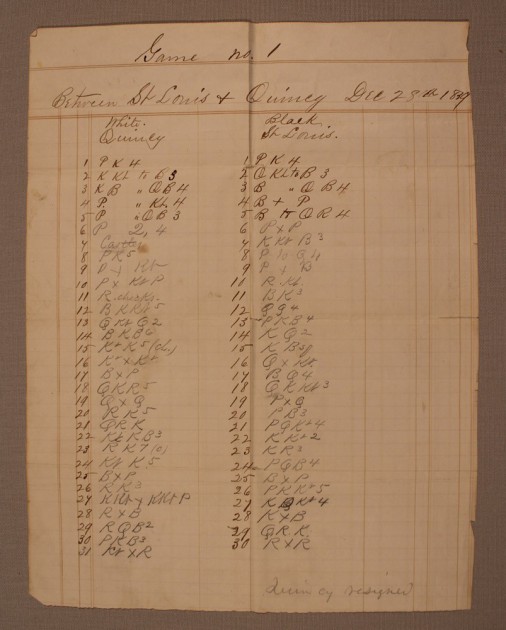 Game no. 1
Between St Louis & Quincy Dec 28th
White. Black
Quincy St Louis.
1 P K 4 1 P K 4
2 K Kt to B 3 2 Q Kt to B 3
3 K B " Q B 4 3 B " Q B 4
4 P. " Kt. 4 4 B + P
5 P " Q B 3 5 B to Q R 4
6 P 2, 4 6 P x P
7 Castls 7 K Kt B 3
8 P K 5 8 P to Q 4
9 P + Kt 9 P + B
10 P x Kt P 10 R Kt.
11 R checks 11 B K 3
12 B K Kt 5 12 Q Q 4
13 Q Kt Q 2 13 P K B 4
14 14 K Q 2
15 Kt K 5 (ch.) 15 K B sq
16 Kt x Kt 16 Q x Kt.
17 B x P 17 B Q 4
18 Q K R 5 18 Q K Kt 3
19 Q x Q 19 P x Q
20 R K 5 20 P B 3
21 Q R K 21 P Q Kt 4
22 Kt K B 3 22 K Kt 2
23 R K 7 23 K R 3
24 Kt K 5 24 P Q B 4
25 B x P 25 B x P
26 R K 3 26 P K Kt 5
27 K Kt x K Kt P 27 Kt 4
28 R x B 28 K x B
29 R Q B 2 29 Q R K
30 P K B 3 30 R x R
31 Kt x R
Quincy resigned